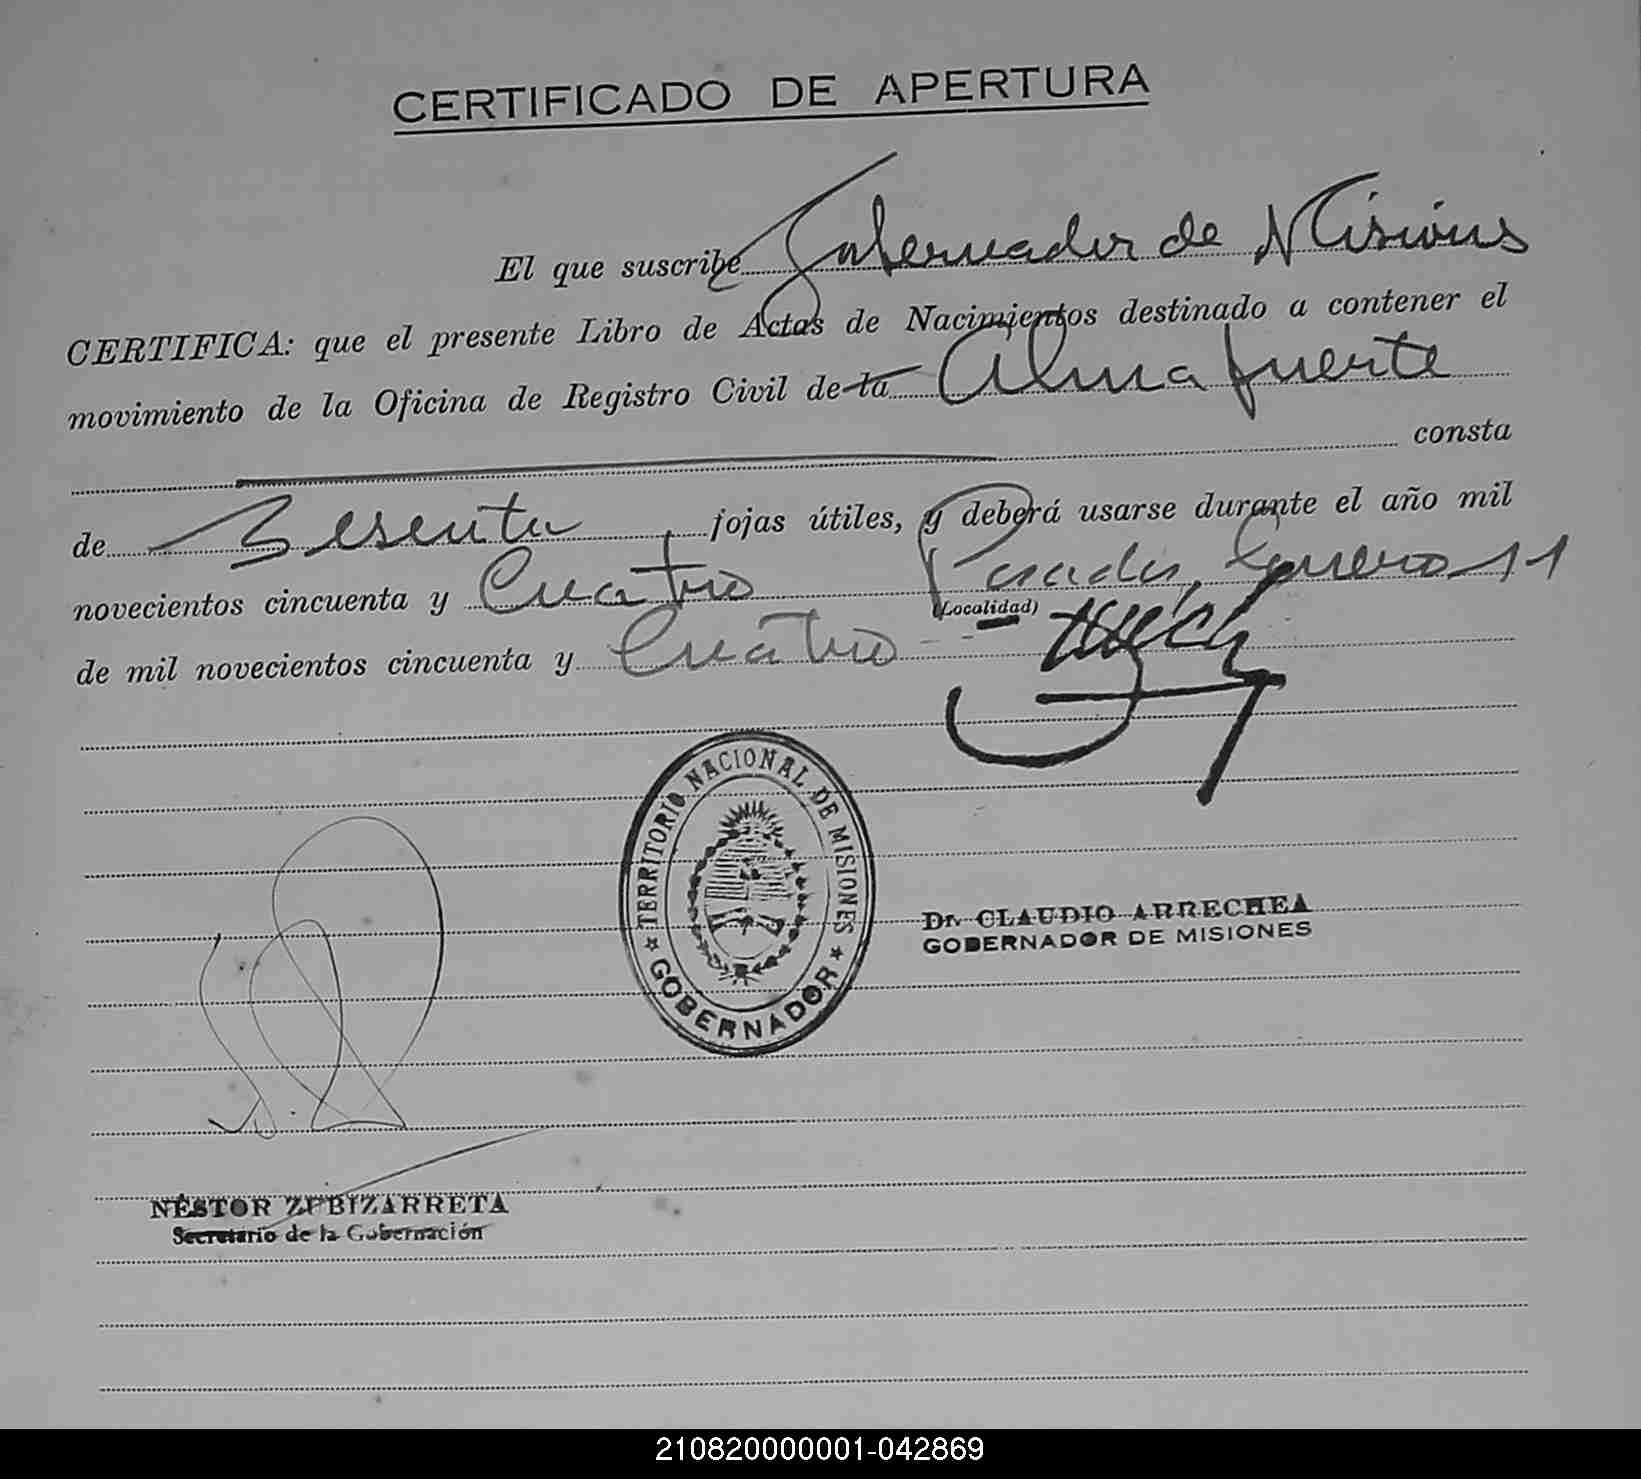 CERTIFICADO DE APERTURA
El que suscribe Gobernador de Misiones
CERTIFICA: que el presente Libro de Actas de Nacimientos destinado a contener el
movimiento de la Oficina de Registro Civil de la Alma fuerte
consta
de Sesenta fojas útiles, y deberá usarse durante el año mil
novecientos cincuenta y Cuatro Posadas, Enero 11
(Localidad)
de mil novecientos cincuenta y Cuatro
TERRITORIO NACIONAL DE MISIONES
GOBERNADOR
Dr. CLAUDIO ARRECHEA
GOBERNADOR DE MISIONES
NÉSTOR ZUBIZARRETA
Secretario de la Gobernación
210820000001-042869